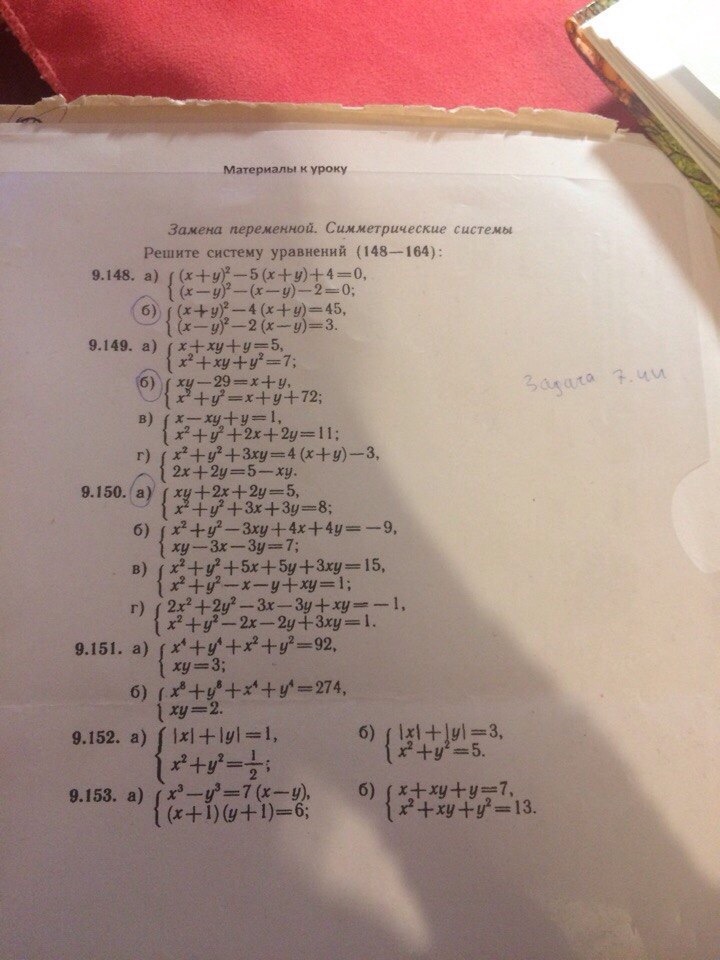 Материалы к уроку
Замена переменной. Симметрические системы
Решите систему уравнений (148—164):
9.148. а) { (x+y)²−5(x+y)+4=0,
(x−y)²−(x−y)−2=0;
б) { (x+y)²−4(x+y)=45,
(x−y)²−2(x−y)=3.
9.149. а) { x+xy+y=5,
x²+xy+y²=7;
б) { xy−29=x+y,
x²+y²=x+y+72;
Задача 7.44
в) { x−xy+y=1,
x²+y²+2x+2y=11;
г) { x²+y²+3xy=4(x+y)−3,
2x+2y=5−xy.
9.150. а) { xy+2x+2y=5,
x²+y²+3x+3y=8;
б) { x²+y²−3xy+4x+4y=−9,
xy−3x−3y=7;
в) { x²+y²+5x+5y+3xy=15,
x²+y²−x−y+xy=1;
г) { 2x²+2y²−3x−3y+xy=−1,
x²+y²−2x−2y+3xy=1.
9.151. а) { x⁴+y⁴+x²+y²=92,
xy=3;
б) { x⁸+y⁸+x⁴+y⁴=274,
xy=2.
9.152. а) { |x|+|y|=1,
x²+y²=1/2;
б) { |x|+|y|=3,
x²+y²=5.
9.153. а) { x³−y³=7(x−y),
(x+1)(y+1)=6;
б) { x+xy+y=7,
x²+xy+y²=13.